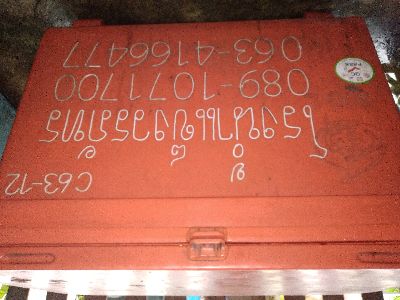 C63-12
โรงน้ำแข็งวรภัทร
089-1071700
063-4166477